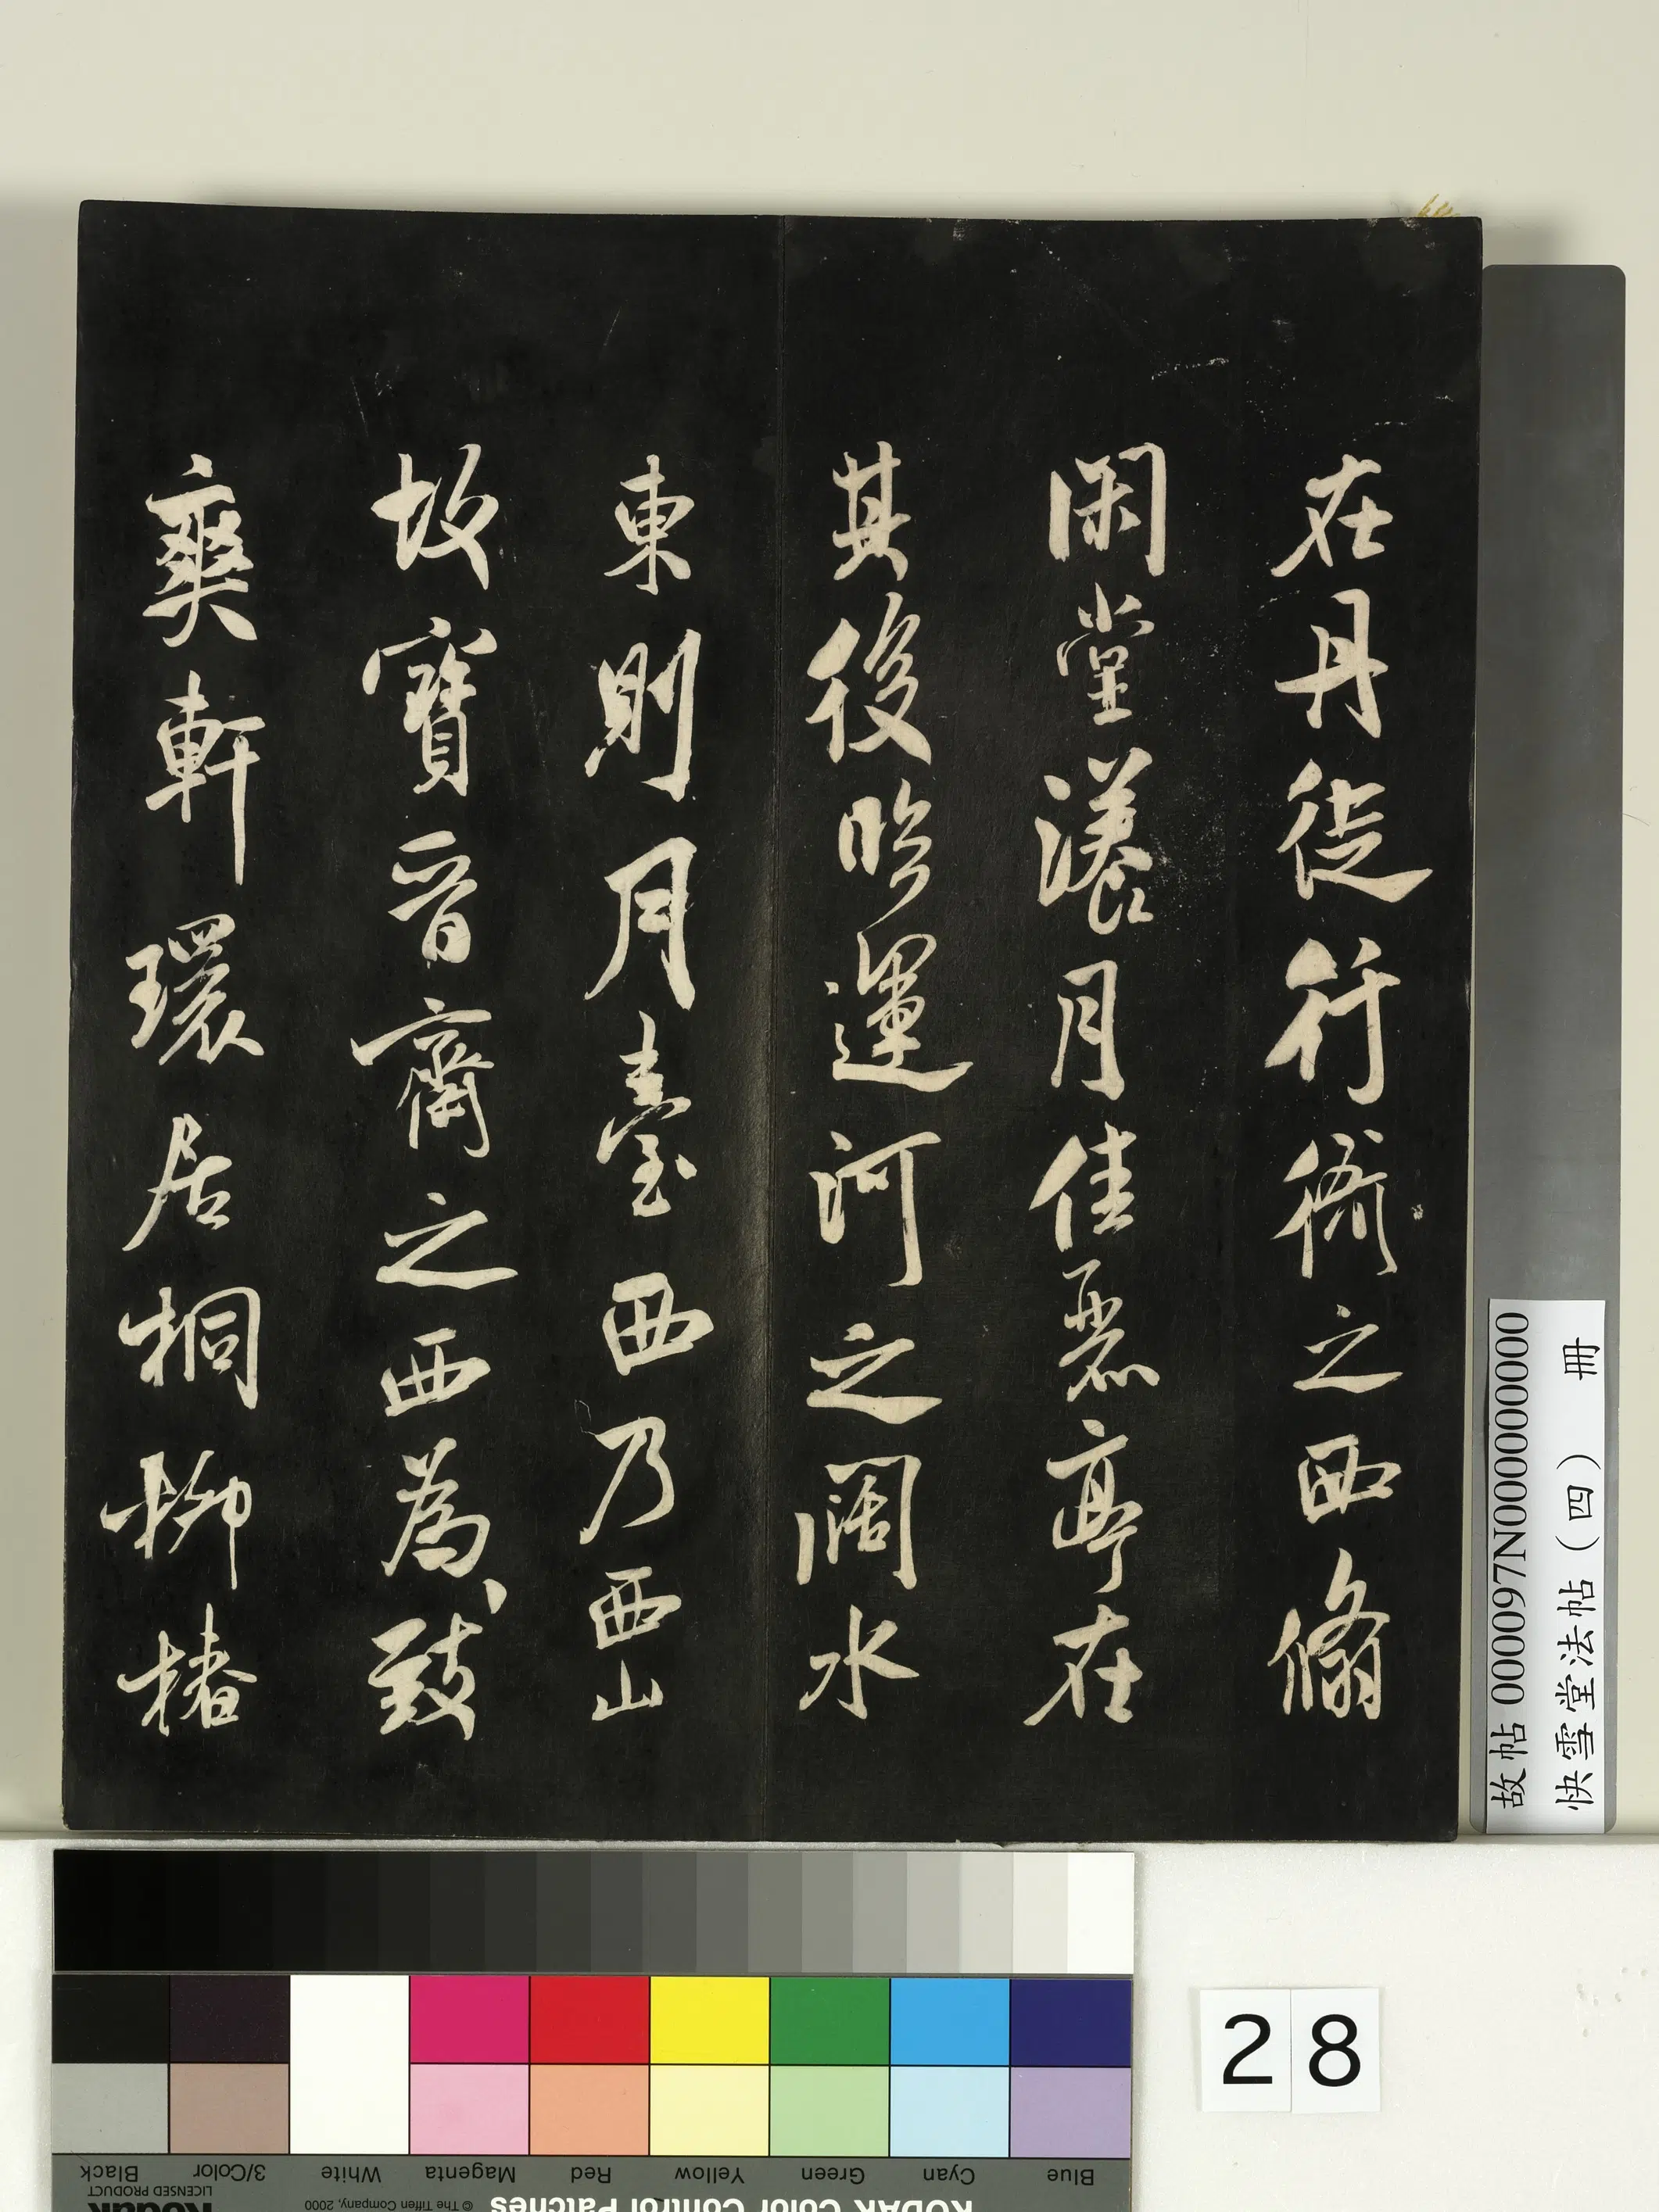 在丹徒行衙之西翛
閑堂漾月佳麗亭在
其後臨運河之闊水
東則月臺西乃西山
故寶晉齋之西為致
爽軒環居桐柳椿
故帖 000097N000000000
快雪堂法帖(四) 冊
28
Blue Cyan Green Yellow Red Magenta White 3/Color Black
KODAK Color Control Patches © The Tiffen Company, 2000 Kodak LICENSED PRODUCT